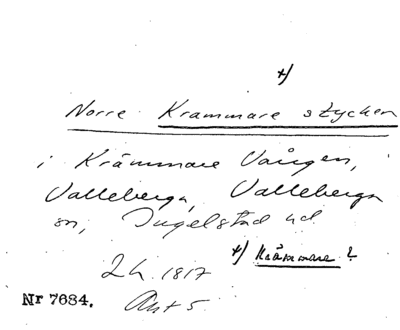 x)
Norre Krammare stycken
i Krämmare Vången,
Valleberga, Valleberga
sn, Ingelstad hd
x) Krämmare?
Lh. 1817
Nr 7684. Akt 5